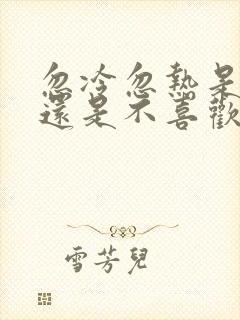 忽冷忽熱是
還是不喜歡
雪芳兒